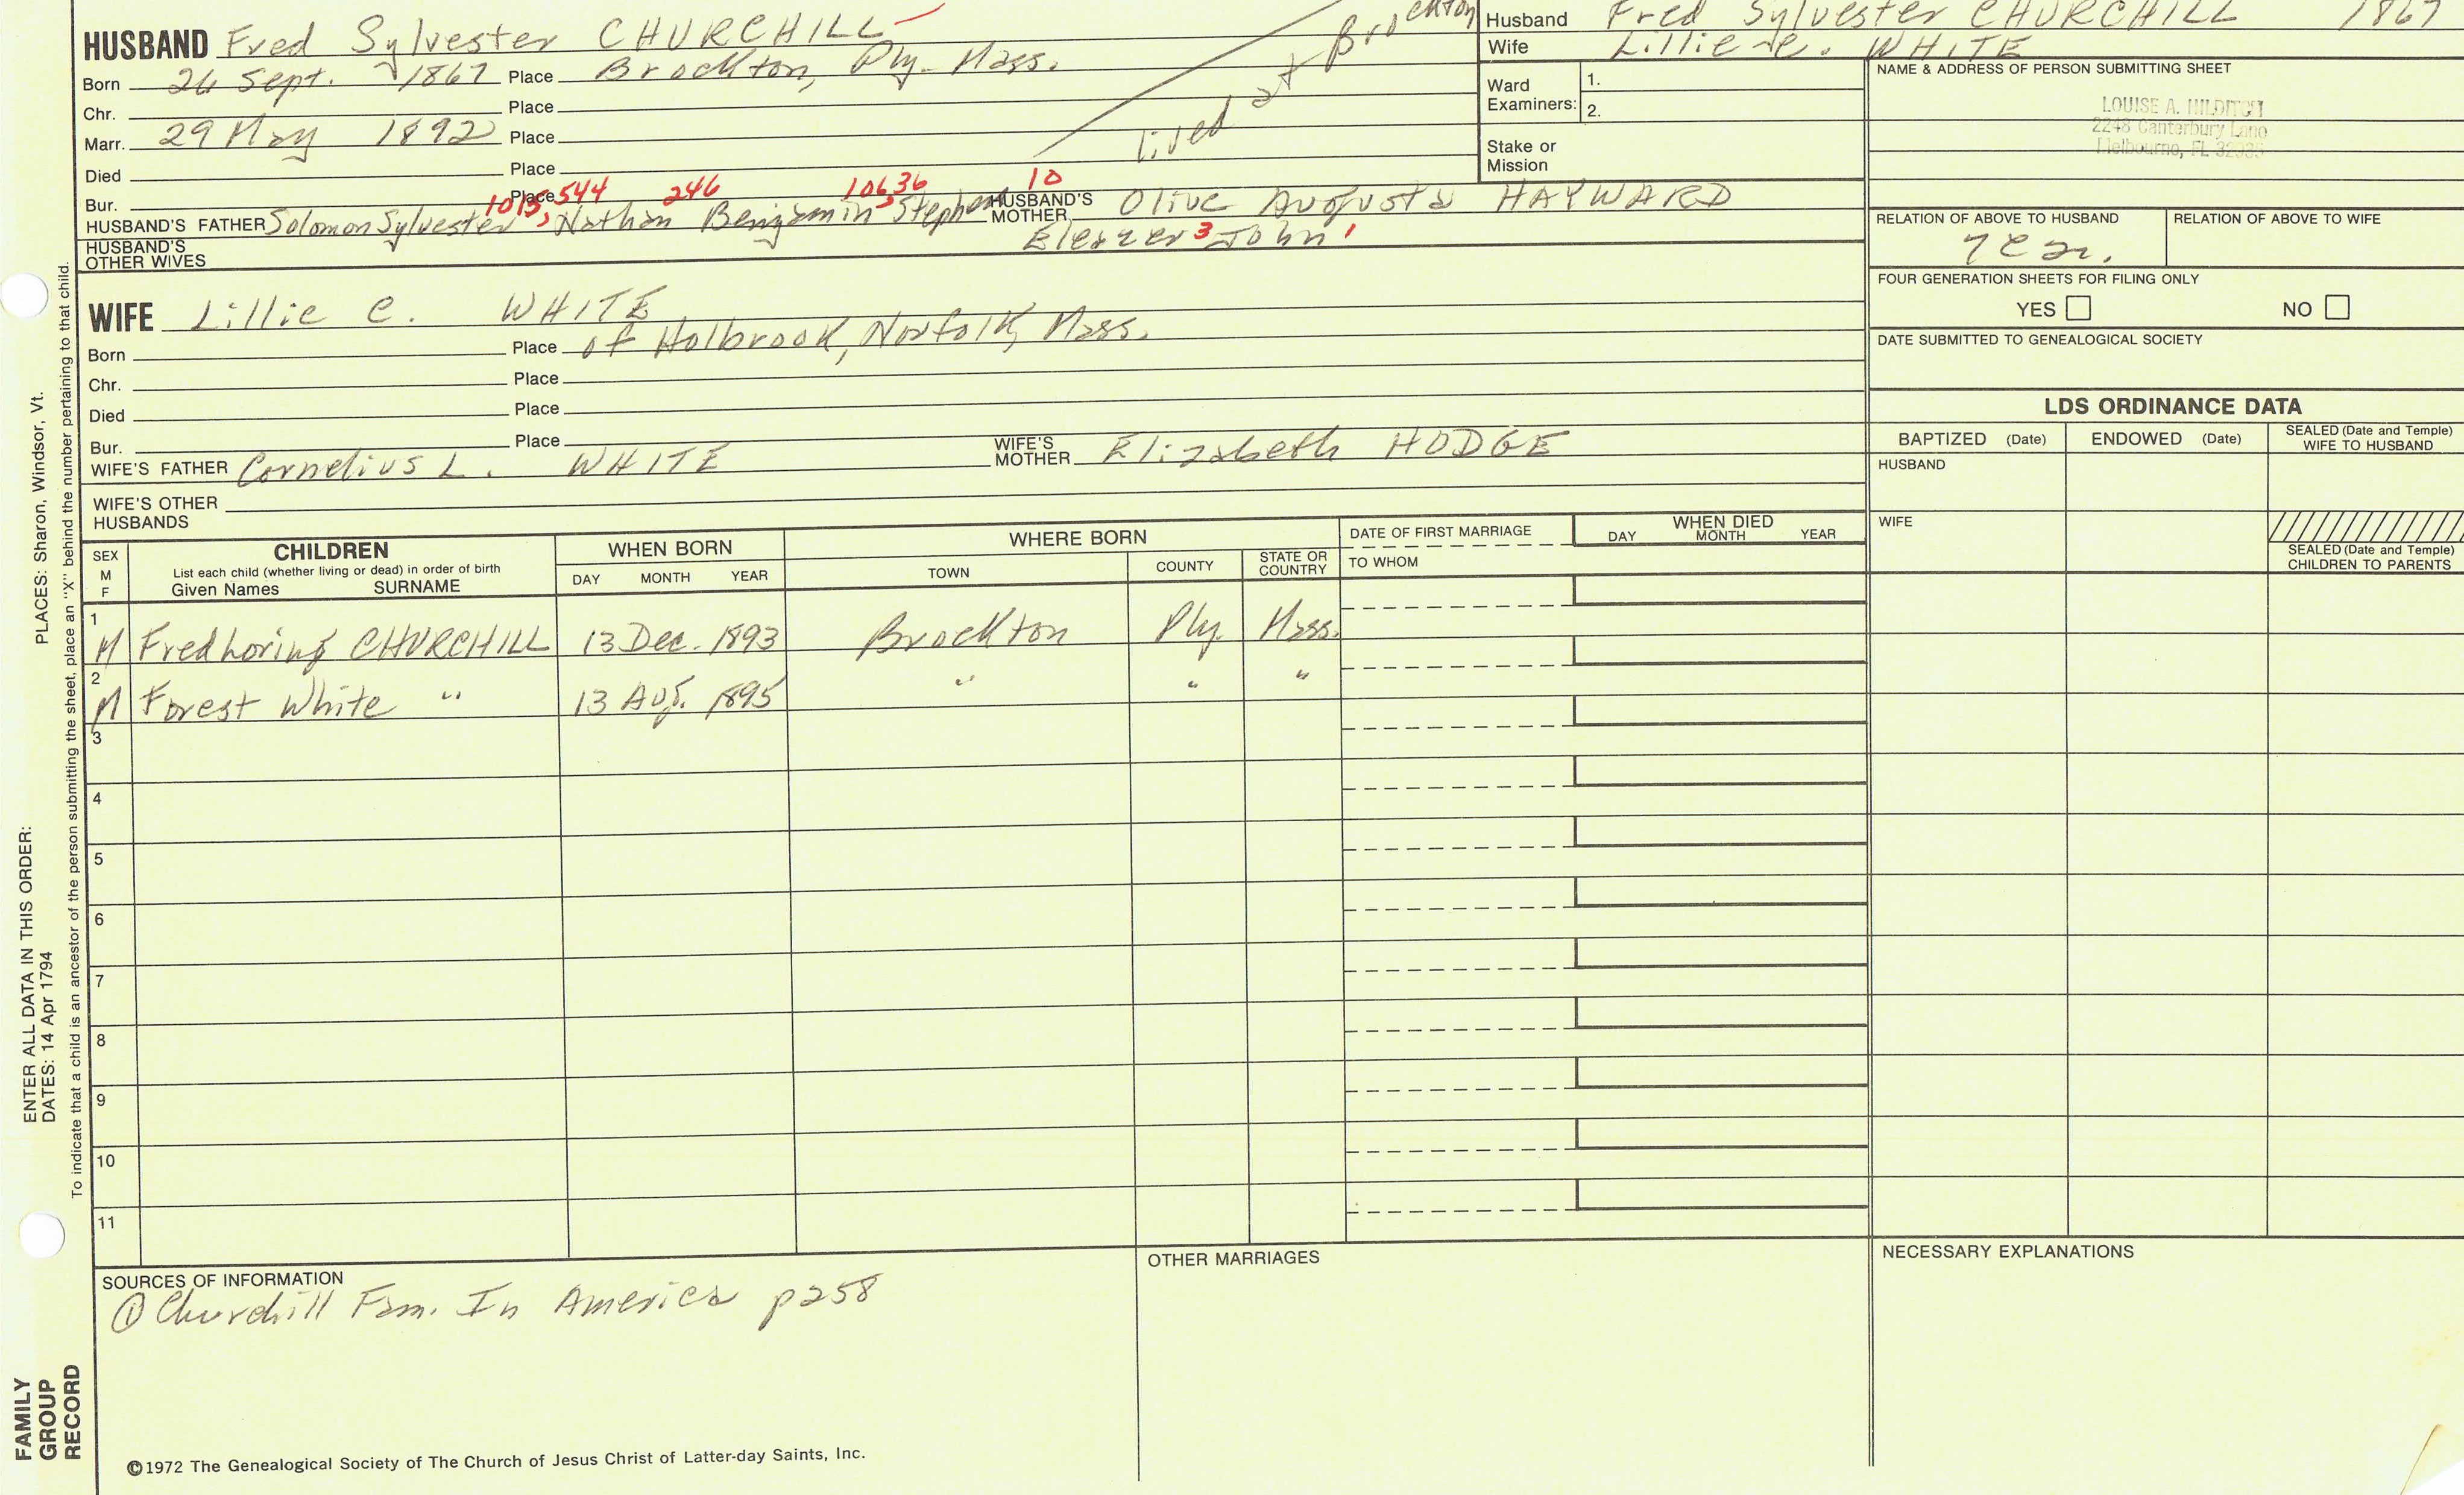 HUSBAND Fred Sylvester CHURCHILL
Born 26 Sept. 1867 Place Brockton, Ply. Mass.
Chr. Place
Marr. 29 May 1892 Place
Died Place
Bur. Place
lived at Brockton
1015, 544 246 106 36 10
HUSBAND'S FATHER Solomon Sylvester, Nathan Benjamin Stephen HUSBAND'S MOTHER Olive Augusta HAYWARD
Eleazer 3 John 1
HUSBAND'S OTHER WIVES
WIFE Lillie C. WHITE
Born Place of Holbrook, Norfolk, Mass.
Chr. Place
Died Place
Bur. Place
WIFE'S FATHER Cornelius L. WHITE WIFE'S MOTHER Elizabeth HODGE
WIFE'S OTHER HUSBANDS
Husband Fred Sylvester CHURCHILL 1867
Wife Lillie C. WHITE
Ward Examiners: 1.
2.
Stake or Mission
NAME & ADDRESS OF PERSON SUBMITTING SHEET
LOUISE A. HILDITCH
2248 Canterbury Lane
Melbourne, FL 32935
RELATION OF ABOVE TO HUSBAND RELATION OF ABOVE TO WIFE
FOUR GENERATION SHEETS FOR FILING ONLY
YES NO
DATE SUBMITTED TO GENEALOGICAL SOCIETY
LDS ORDINANCE DATA
BAPTIZED (Date) ENDOWED (Date) SEALED (Date and Temple) WIFE TO HUSBAND
HUSBAND
WIFE
SEALED (Date and Temple) CHILDREN TO PARENTS
SEX M F
CHILDREN
List each child (whether living or dead) in order of birth
Given Names SURNAME
WHEN BORN
DAY MONTH YEAR
WHERE BORN
TOWN COUNTY STATE OR COUNTRY
DATE OF FIRST MARRIAGE
TO WHOM
WHEN DIED
DAY MONTH YEAR
1 M Fred Loring CHURCHILL 13 Dec. 1893 Brockton Ply. Mass.
2 M Forest White " 13 Aug. 1895 " " "
3
4
5
6
7
8
9
10
11
SOURCES OF INFORMATION
① Churchill Fam. In America p258
OTHER MARRIAGES
NECESSARY EXPLANATIONS
©1972 The Genealogical Society of The Church of Jesus Christ of Latter-day Saints, Inc.
FAMILY GROUP RECORD
ENTER ALL DATA IN THIS ORDER:
DATES: 14 Apr 1794
PLACES: Sharon, Windsor, Vt.
To indicate that a child is an ancestor of the person submitting the sheet, place an "X" behind the number pertaining to that child.